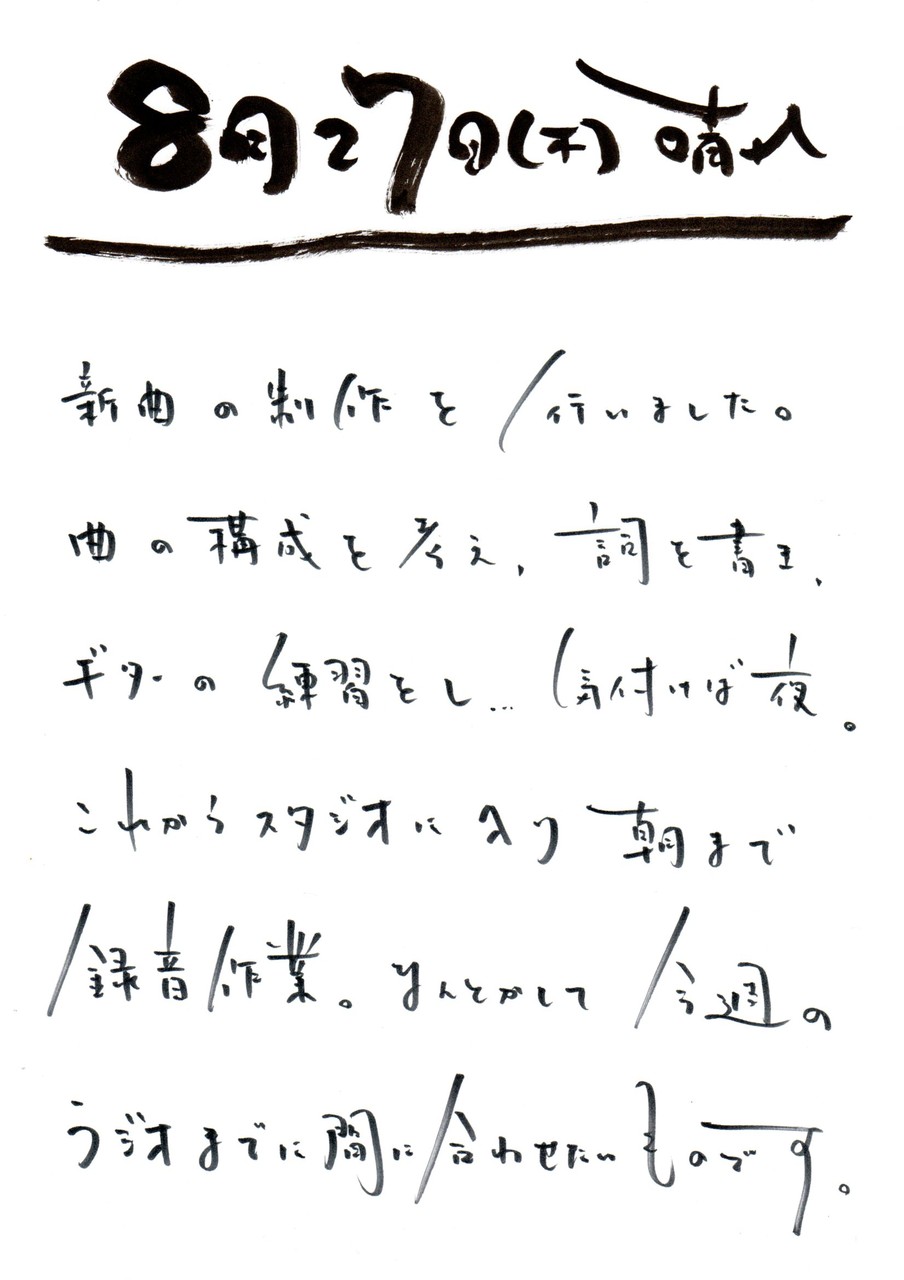 8月27日(木) 晴れ
新曲の制作を行いました。
曲の構成を考え、詞を書き、
ギターの練習をし…気付けば夜。
これからスタジオに入り朝まで
録音作業。なんとかして今週の
ラジオまでに間に合わせたいものです。